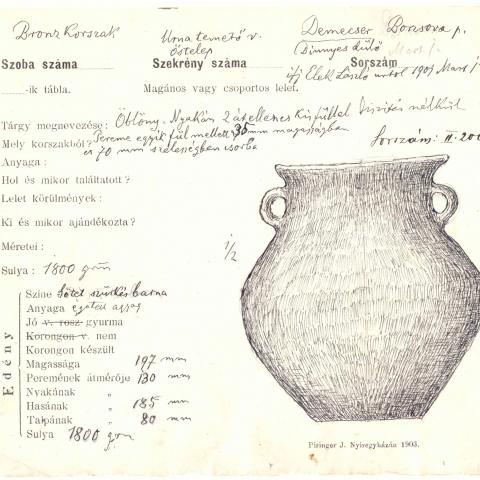 Bronz Korszak Urna temető v. őstelep Demecser Borzsova p. Dinnyes dülő
Szoba száma Szekrény száma Sorszám
ifj Elek László urtol 1907 Mart /-
-ik tábla. Magános vagy csoportos lelet.
Tárgy megnevezése: Öblöny. Nyakán 2 átellenes kis füllel Diszités nélkül
Mely korszakból? Pereme egyik fül mellett 35 mm magasságban
és 70 mm szélességben csorba Sorszám: II. 200
Anyaga:
Hol és mikor találtatott?
Lelet körülmények:
Ki és mikor ajándékozta?
Méretei: 1/2
Sulya: 1800 grm
Edény
Szine Sötét szürkésbarna
Anyaga égetett agyag
Jó v. rosz gyurma
Korongon v. nem
Korongon készült
Magassága 197 mm
Peremének átmérője 130 mm
Nyakának "
Hasának " 185 mm
Talpának " 80 mm
Sulya 1800 grm
Piringer J. Nyiregyházán 1903.